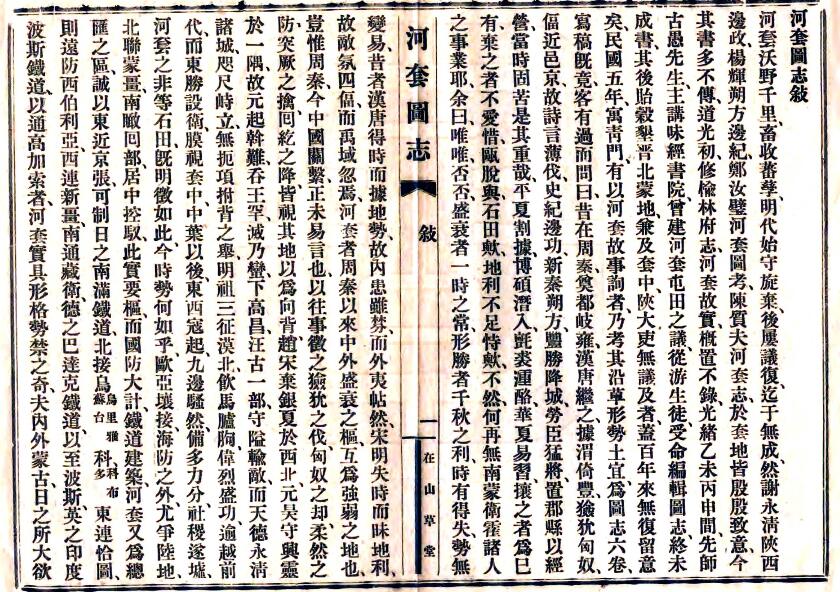 河套圖志敍
河套沃野千里、畜收蕃孳、明代始守旋棄、後屢議復、迄于無成、然謝永淸陝西
邊政、楊輝朔方邊紀、鄭汝璧河套圖考、陳質夫河套志、於套地皆殷殷致意、今
其書多不傳、道光初修楡林府志、河套故實、槪置不錄、光緒乙未丙申間、先師
古愚先生、主講味經書院、曾建河套屯田之議、從游生徒、受命編輯圖志、終未
成書、其後貽穀墾晋北蒙地、兼及套中、陝大吏無議及者、蓋百年來無復留意
矣、民國五年、寓靑門、有以河套故事詢者、乃考其沿革形勢土宜、爲圖志六卷、
寫稿旣竟、客有過而問曰、昔在周秦、奠都岐雍、漢唐繼之、據渭倚豐、獫狁匈奴、
偪近邑京、故詩言薄伐、史紀邊功、新秦朔方、豐勝降城、勞臣猛將、置郡縣以經
營、當時固苦是其重哉、平夏割據、博碩潛入、氈裘湩酪、華夏易習、攘之者爲已
有、棄之者不愛惜、甌脫與石田歟、地利不足恃歟、不然、何再無南蒙衛霍諸人
之事業耶、余曰、唯唯否否、盛衰者一時之常、形勝者千秋之利、時有得失、勢無
河套圖志
敍
一
在山草堂
變易、昔者漢唐得時而據地勢、故內患雖棼、而外夷帖然、宋明失時而昧地利、
故敵氛四偪、而禹域忽焉、河套者、周秦以來中外盛衰之樞、互爲強弱之地也、
豈惟周秦、今中國關繫正未易言也、以往事徵之、獫狁之伐、匈奴之却、柔然之
防、突厥之擒、回紇之降、皆視其地以爲向背、趙宋棄銀夏於西北、元昊守興靈
於一隅、故元起斡難、呑王罕、滅乃蠻、下高昌、汪古一部、守隘輸敵、而天德永淸
諸城、咫尺峙立、無扼項拊背之舉、明祖三征漠北、飮馬臚胸、偉烈盛功、逾越前
代、而東勝設衛、膜視套中、中葉以後、東西寇起、九邊騷然、備多力分、社稷遂墟、
河套之非等石田、旣明徵如此、今時勢何如乎、歐亞壤接、海防之外、尤爭陸地、
北聯蒙疆、南瞰回部、居中控馭、此實要樞、而國防大計、鐵道建築、河套又爲總
匯之區、誠以東近京張、可制日之南滿鐵道、北接烏里雅蘇台科布多、東連恰圖
則遠防西伯利亞、西連新疆、南通藏衛、德之巴達克鐵道、以至波斯、英之印度
波斯鐵道、以通高加索者、河套實具形格勢禁之奇、夫內外蒙古、日之所大欲